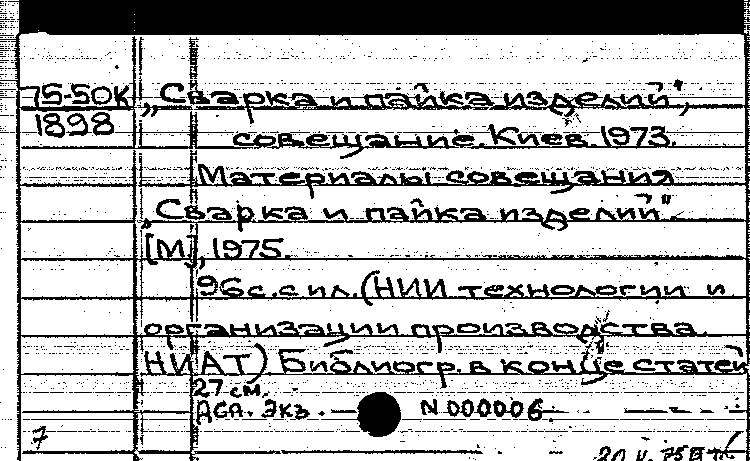 75-50К „Сварка и пайка изделий",
1898 совещание. Киев. 1973.
Материалы совещания
„Сварка и пайка изделий".
[М], 1975.
96с. с ил. (НИИ технологии и
организации производства.
НИАТ) Библиогр. в конце статей
27 см.
Дсп. Экз. N 000006
7